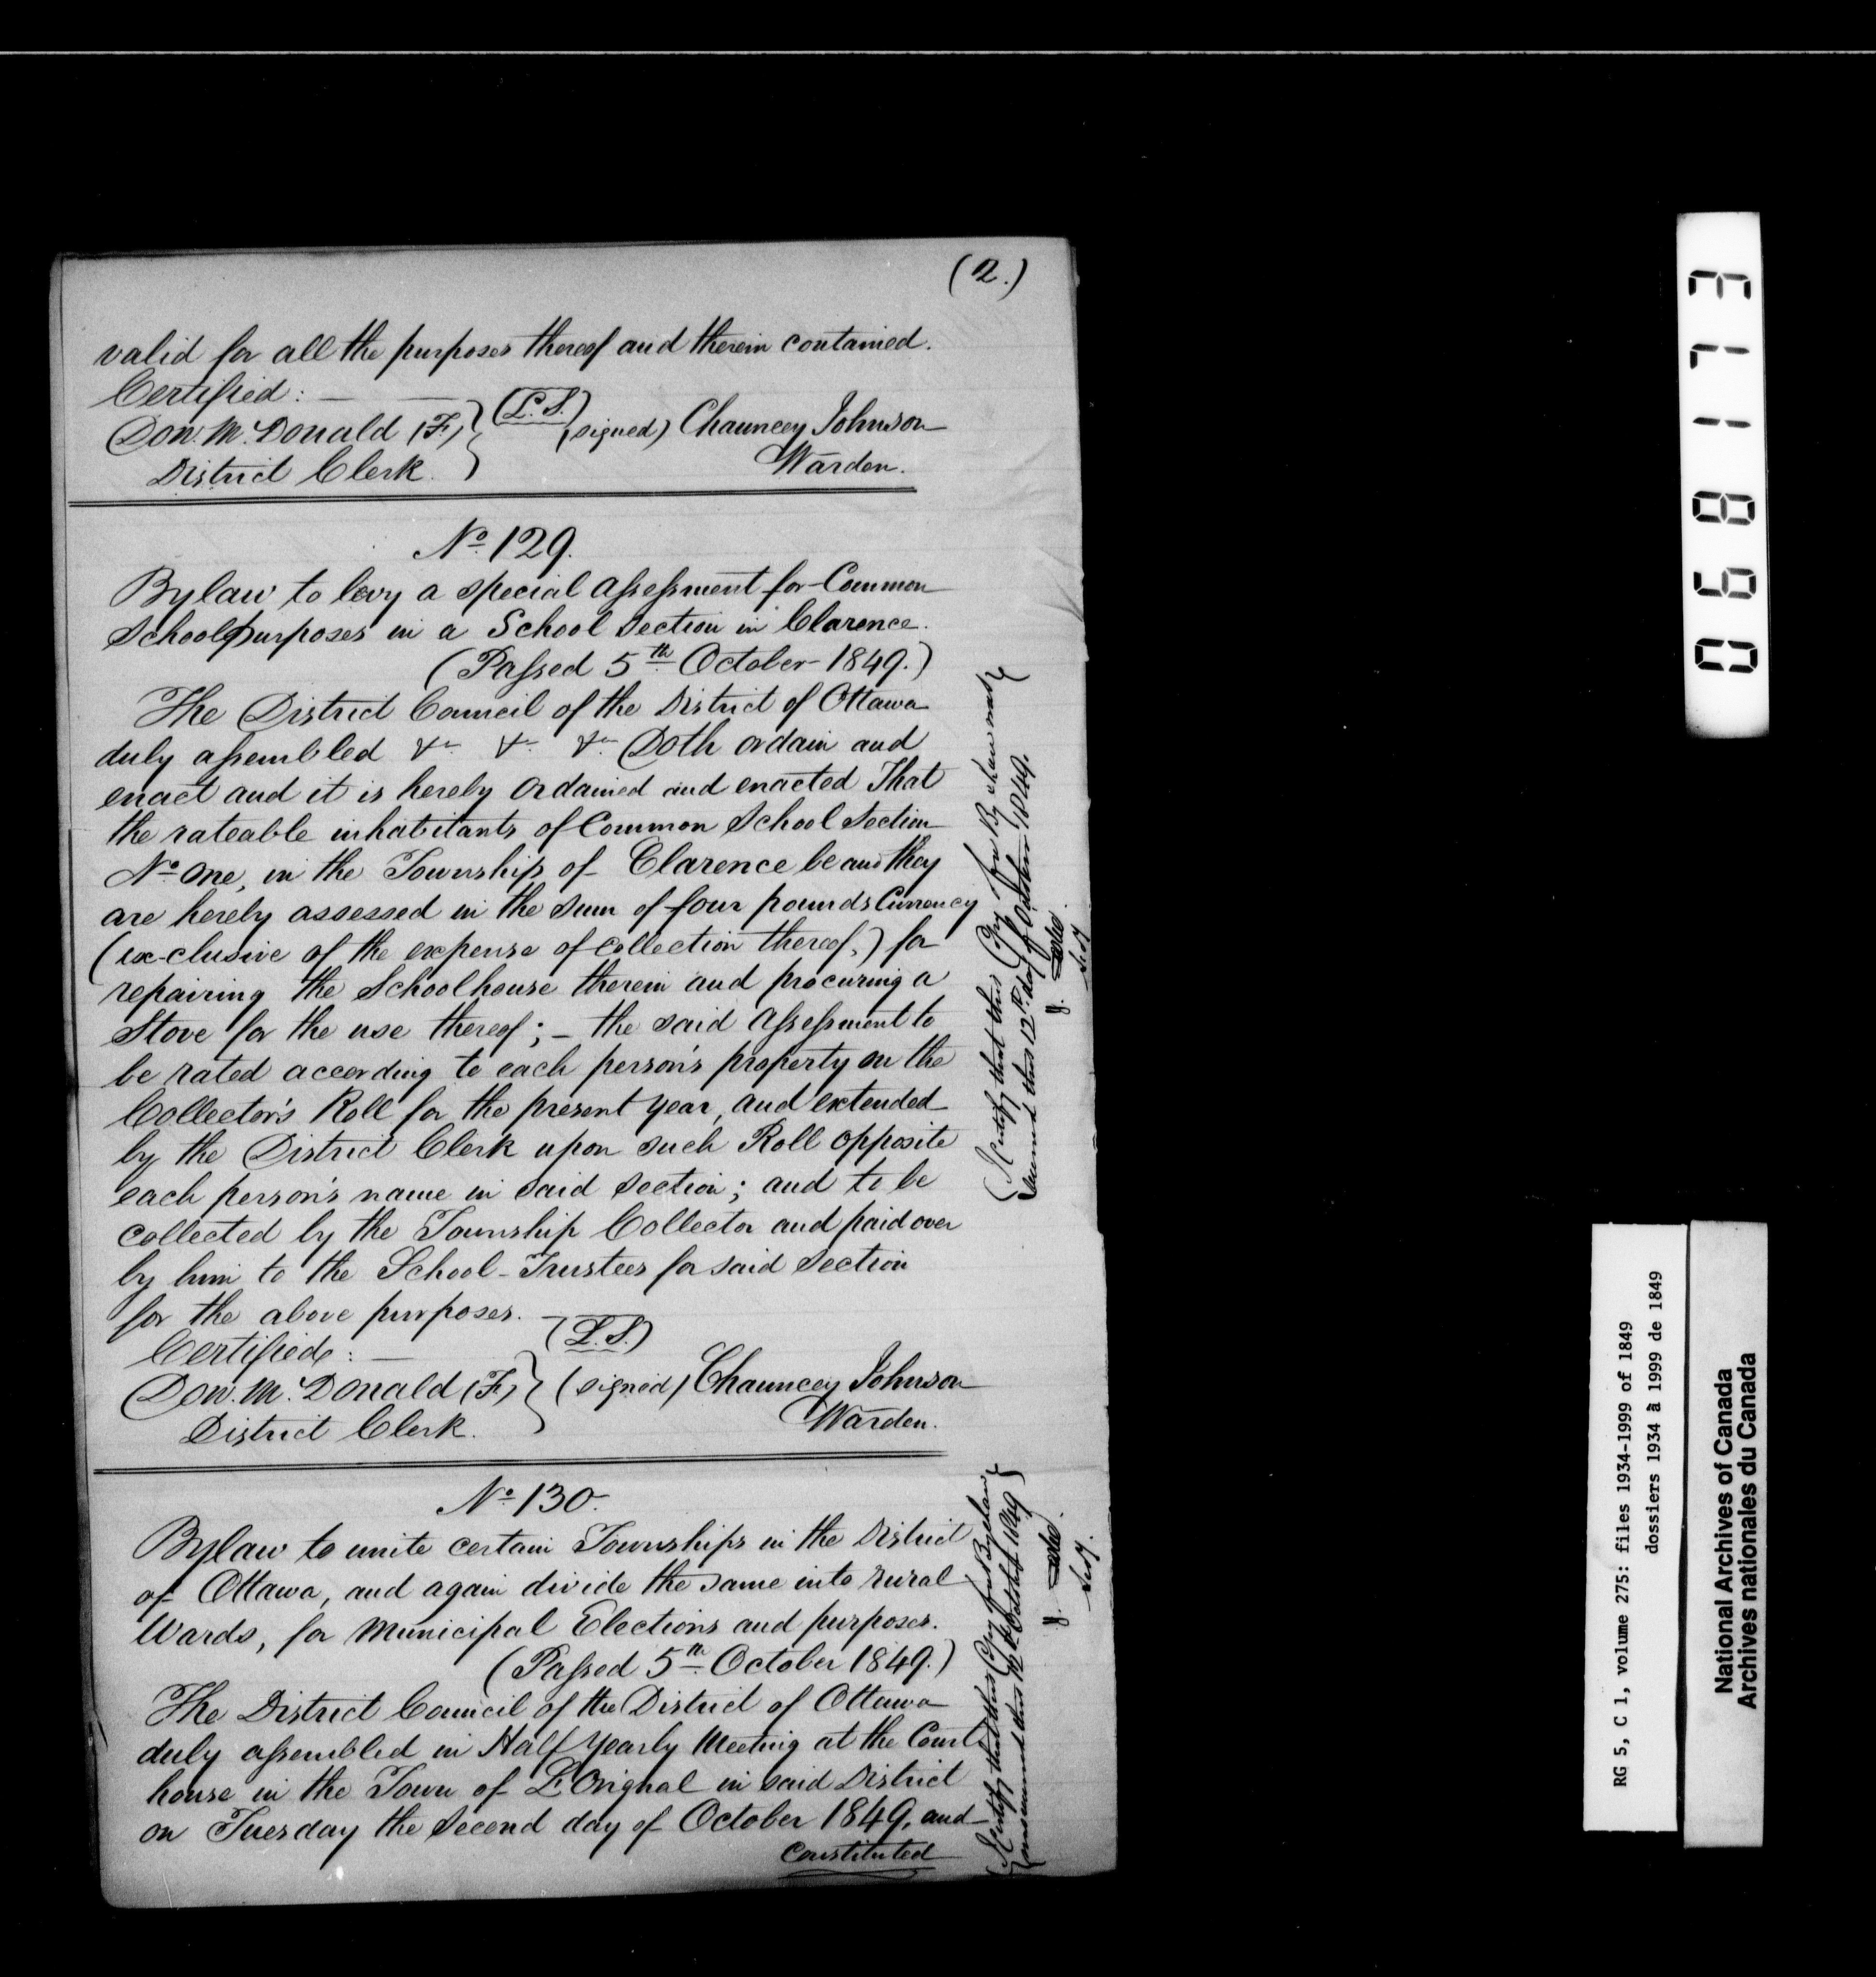 (2.)
valid for all the purposes thereof and therein contained.
Certified: — —
Don. McDonald (F.) } (L. S.) (signed) Chauncey Johnson
District Clerk. Warden.
No. 129.
Bylaw to levy a special Assessment for Common
School purposes in a School Section in Clarence.
(Passed 5th October 1849.)
The District Council of the District of Ottawa
duly assembled &c &c &c Doth ordain and
enact and it is hereby ordained and enacted That
the rateable inhabitants of Common School Section
No. One, in the Township of Clarence be and they
are hereby assessed in the sum of four pounds Currency
(ex-clusive of the expense of collection thereof,) for
repairing the Schoolhouse therein and procuring a
Stove for the use thereof; — the said Assessment to
be rated according to each person's property on the
Collector's Roll for the present year, and extended
by the District Clerk upon such Roll opposite
each person's name in said Section; and to be
collected by the Township Collector and paid over
by him to the School-Trustees for said Section
for the above purposes. —
Certified: — (L. S.)
Don. McDonald (F.) } (signed) Chauncey Johnson
District Clerk. Warden.
No. 130.
Bylaw to unite certain Townships in the District
of Ottawa, and again divide the same into rural
Wards, for Municipal Elections and purposes.
(Passed 5th October 1849.)
The District Council of the District of Ottawa
duly assembled in Half Yearly Meeting at the Court
house in the Town of L'Orignal in said District
on Tuesday the Second day of October 1849, and
constituted
(I certify that this Copy of a By law was
this 12th day of October 1849.
Secy.
(I certify that this Copy of a By law
this 12th October 1849
Secy.
068173
RG 5, C 1, volume 275: files 1934-1999 of 1849
dossiers 1934 à 1999 de 1849
National Archives of Canada
Archives nationales du Canada